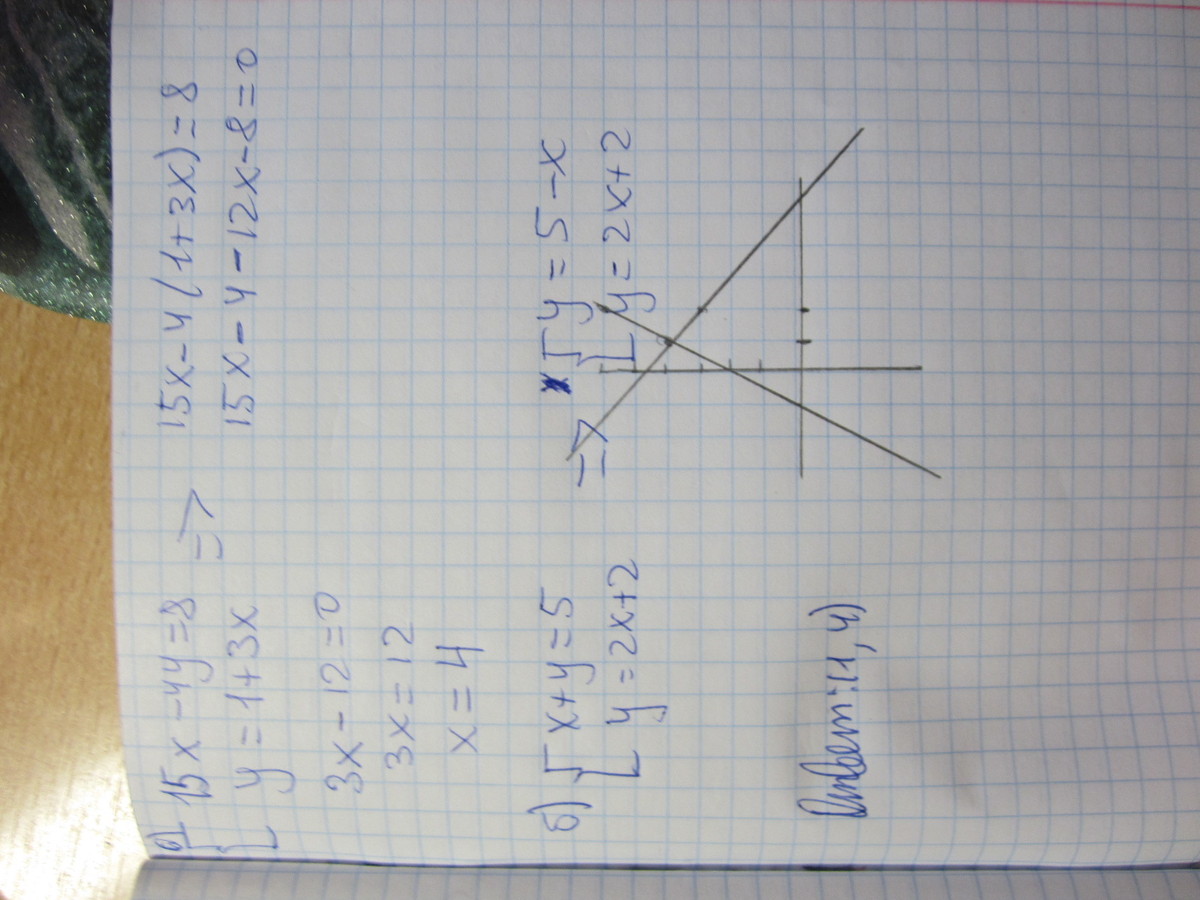 в) { 15x - 4y = 8 => 15x - 4(1+3x) = 8
y = 1+3x 15x - 4 - 12x - 8 = 0
3x - 12 = 0
3x = 12
x = 4
б) { x + y = 5 => { y = 5 - x
y = 2x+2 y = 2x+2
Ответ: (1, 4)